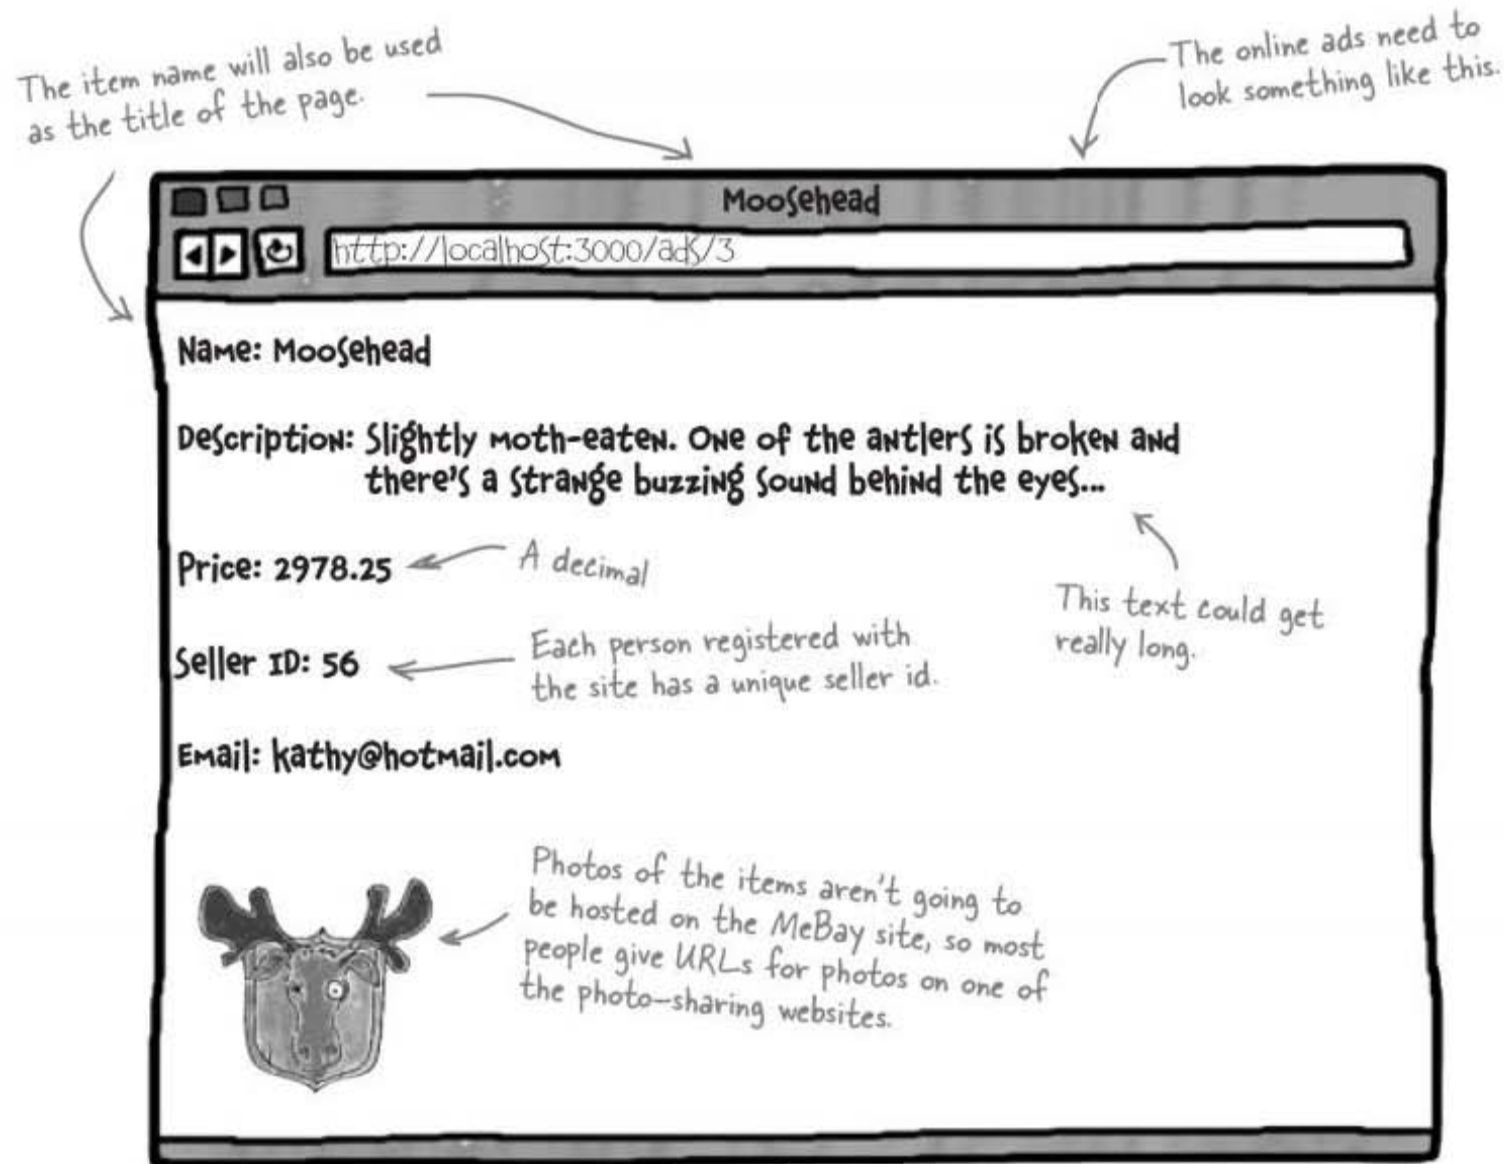 The item name will also be used
as the title of the page.
The online ads need to
look something like this.
Moosehead
http://localhost:3000/ads/3
Name: Moosehead
Description: Slightly moth-eaten. One of the antlers is broken and
there's a strange buzzing sound behind the eyes...
Price: 2978.25
A decimal
This text could get
really long.
Seller ID: 56
Each person registered with
the site has a unique seller id.
Email: kathy@hotmail.com
Photos of the items aren't going to
be hosted on the MeBay site, so most
people give URLs for photos on one of
the photo-sharing websites.